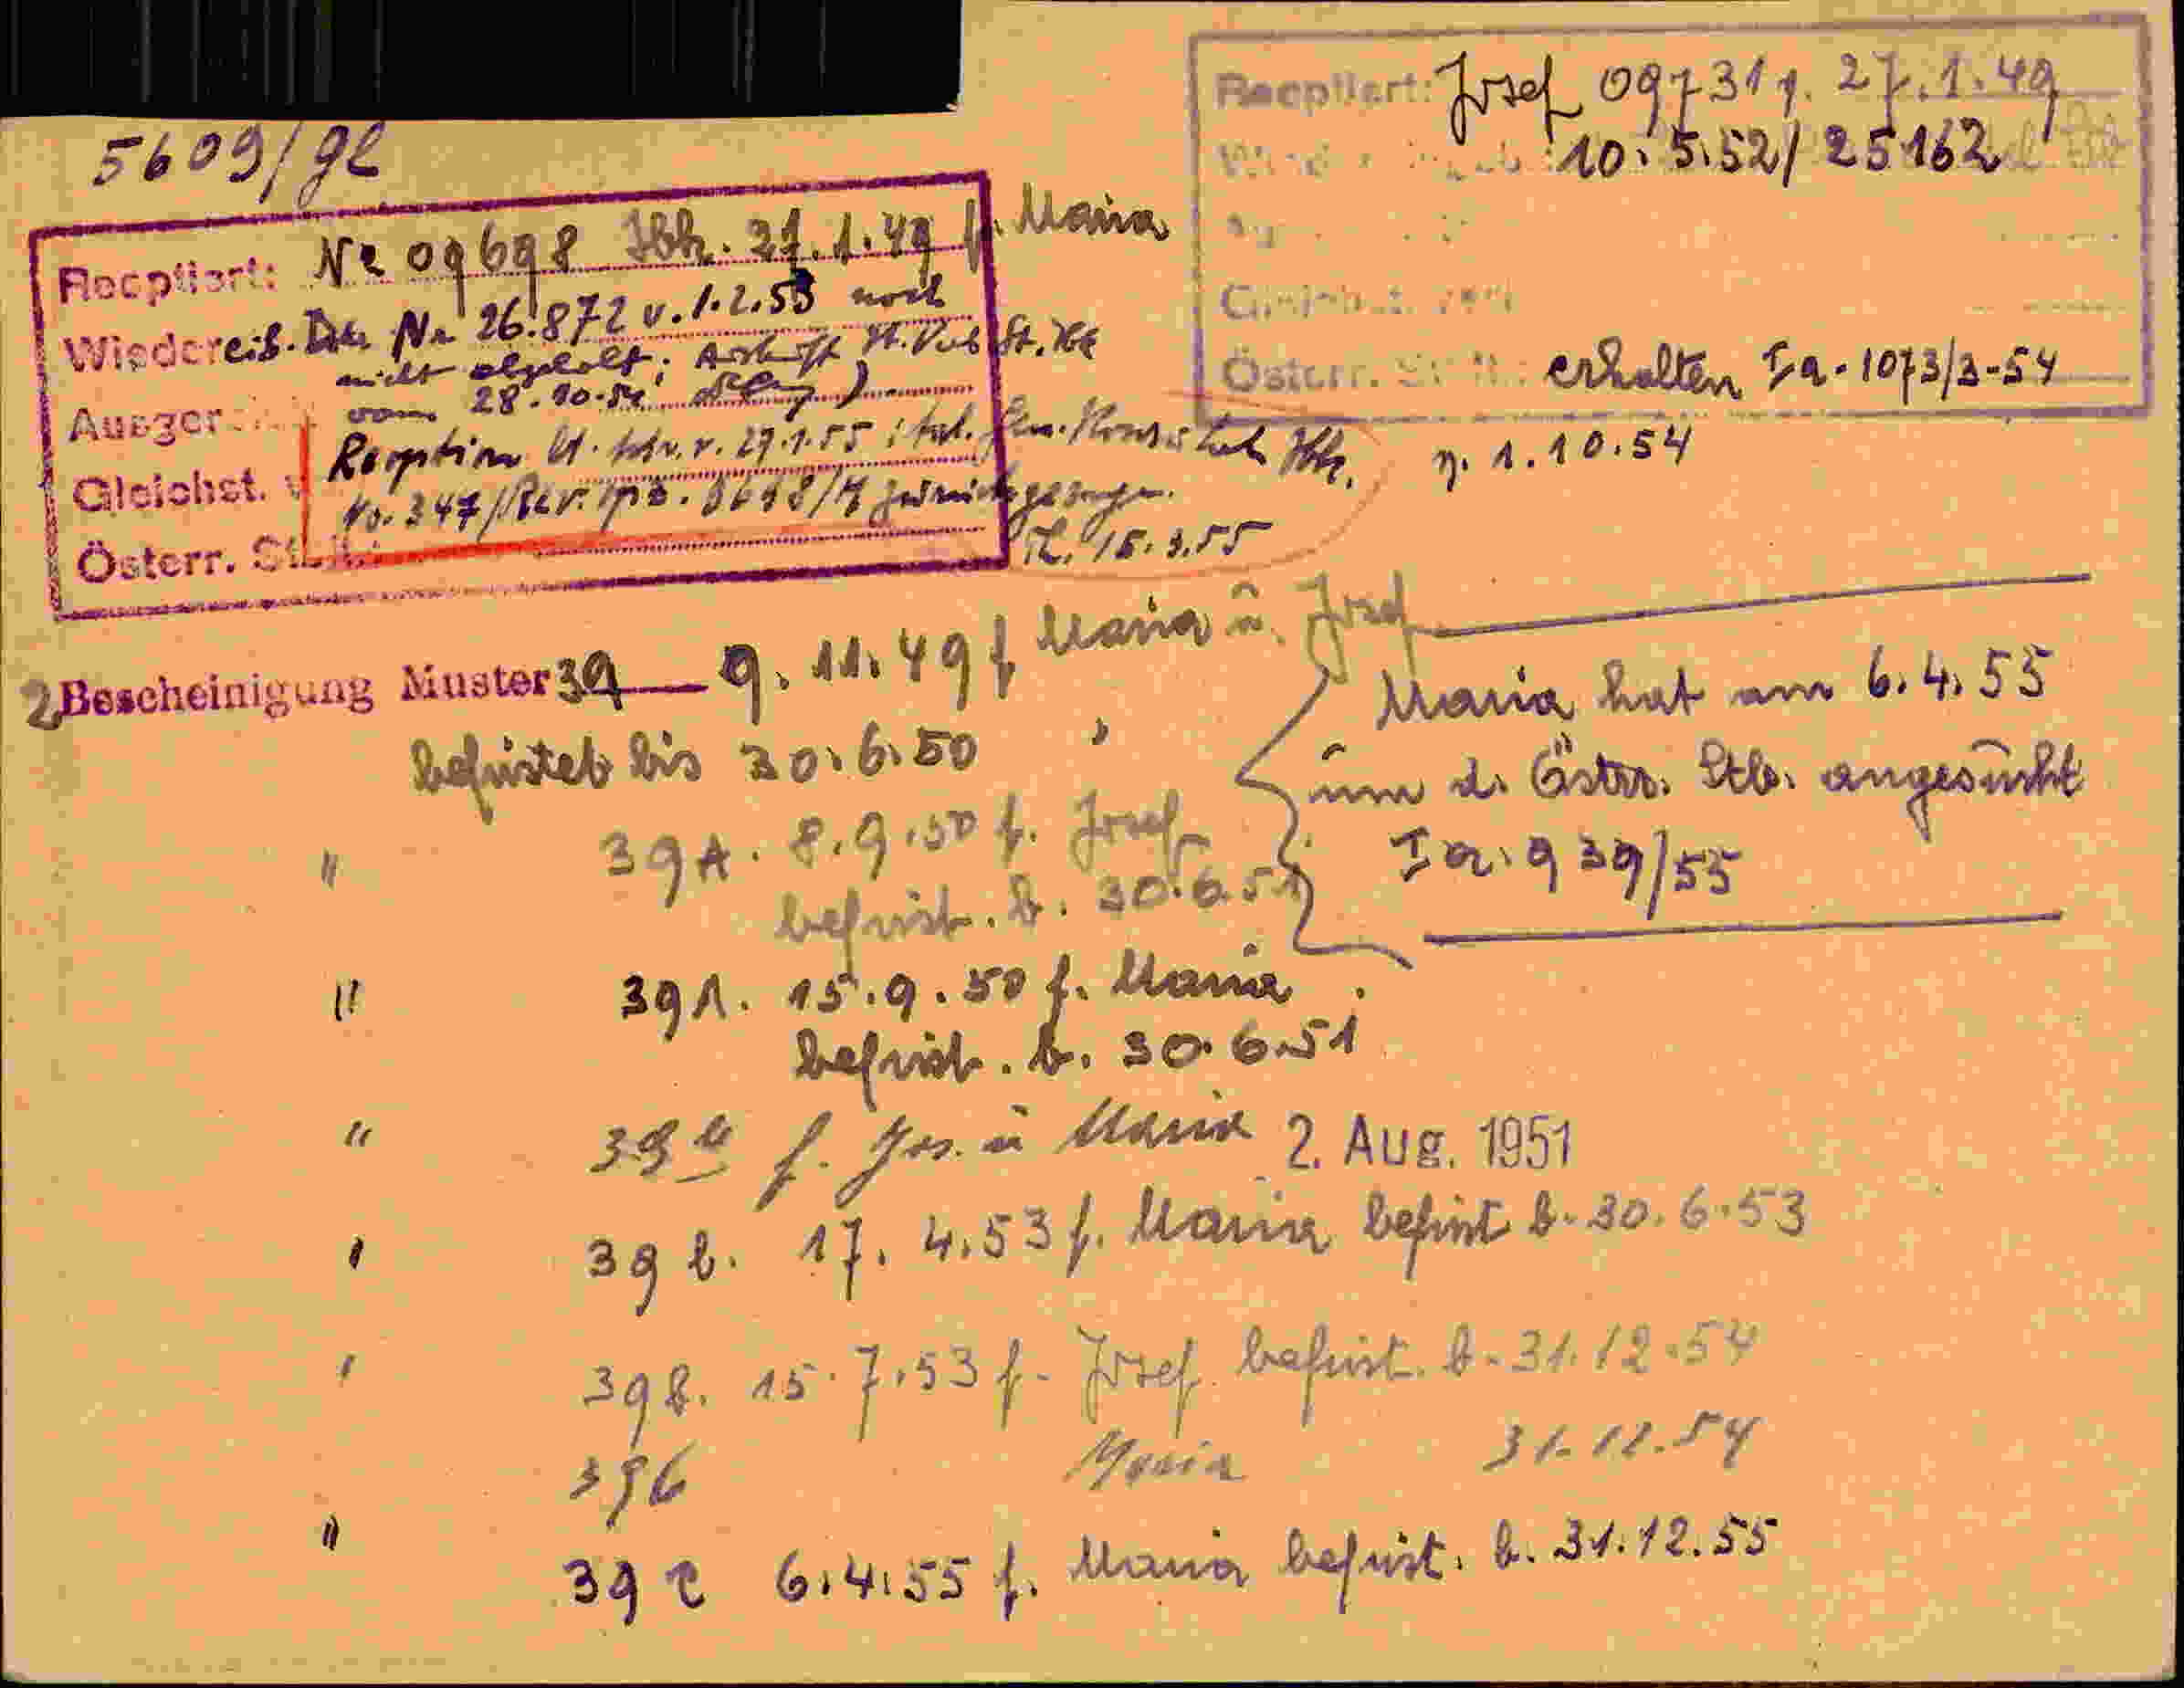 5609/gl
Reoptiert: Nr 09698 Ibk. 27.1.49 f. Maria
Wiedereib. Dek. Nr 26.872 v. 1.2.53 noch
nicht abgeholt;
vom 28.10.54
Ausger
Reoption lt. v. 29.1.55
Gleichst.
No. 347/Rev. 5698/M zurückgezogen.
Österr. St.B.: 15.3.55
Reoptiert: Josef 09731 v. 27.1.49
10.5.52/25162
Österr. St.B.: erhalten Ia-1073/3-54
v. 1.10.54
2 Bescheinigung Muster 39 — 9.11.49 f. Maria u. Josef
befristet bis 30.6.50 "
Maria hat am 6.4.55
um d. Östrr. Stb. angesucht
Ia. 939/55
" 39A. 8.9.50 f. Josef
befrist. b. 30.6.51
" 39A. 15.9.50 f. Maria
befrist. b. 30.6.51
" 39a f. Jos. u Maria 2. Aug. 1951
" 39 b. 17.4.53 f. Maria befrist b. 30.6.53
" 39b. 15.7.53 f. Josef befrist. b. 31.12.54
39b Maria 31.12.54
" 39 c 6.4.55 f. Maria befrist. b. 31.12.55